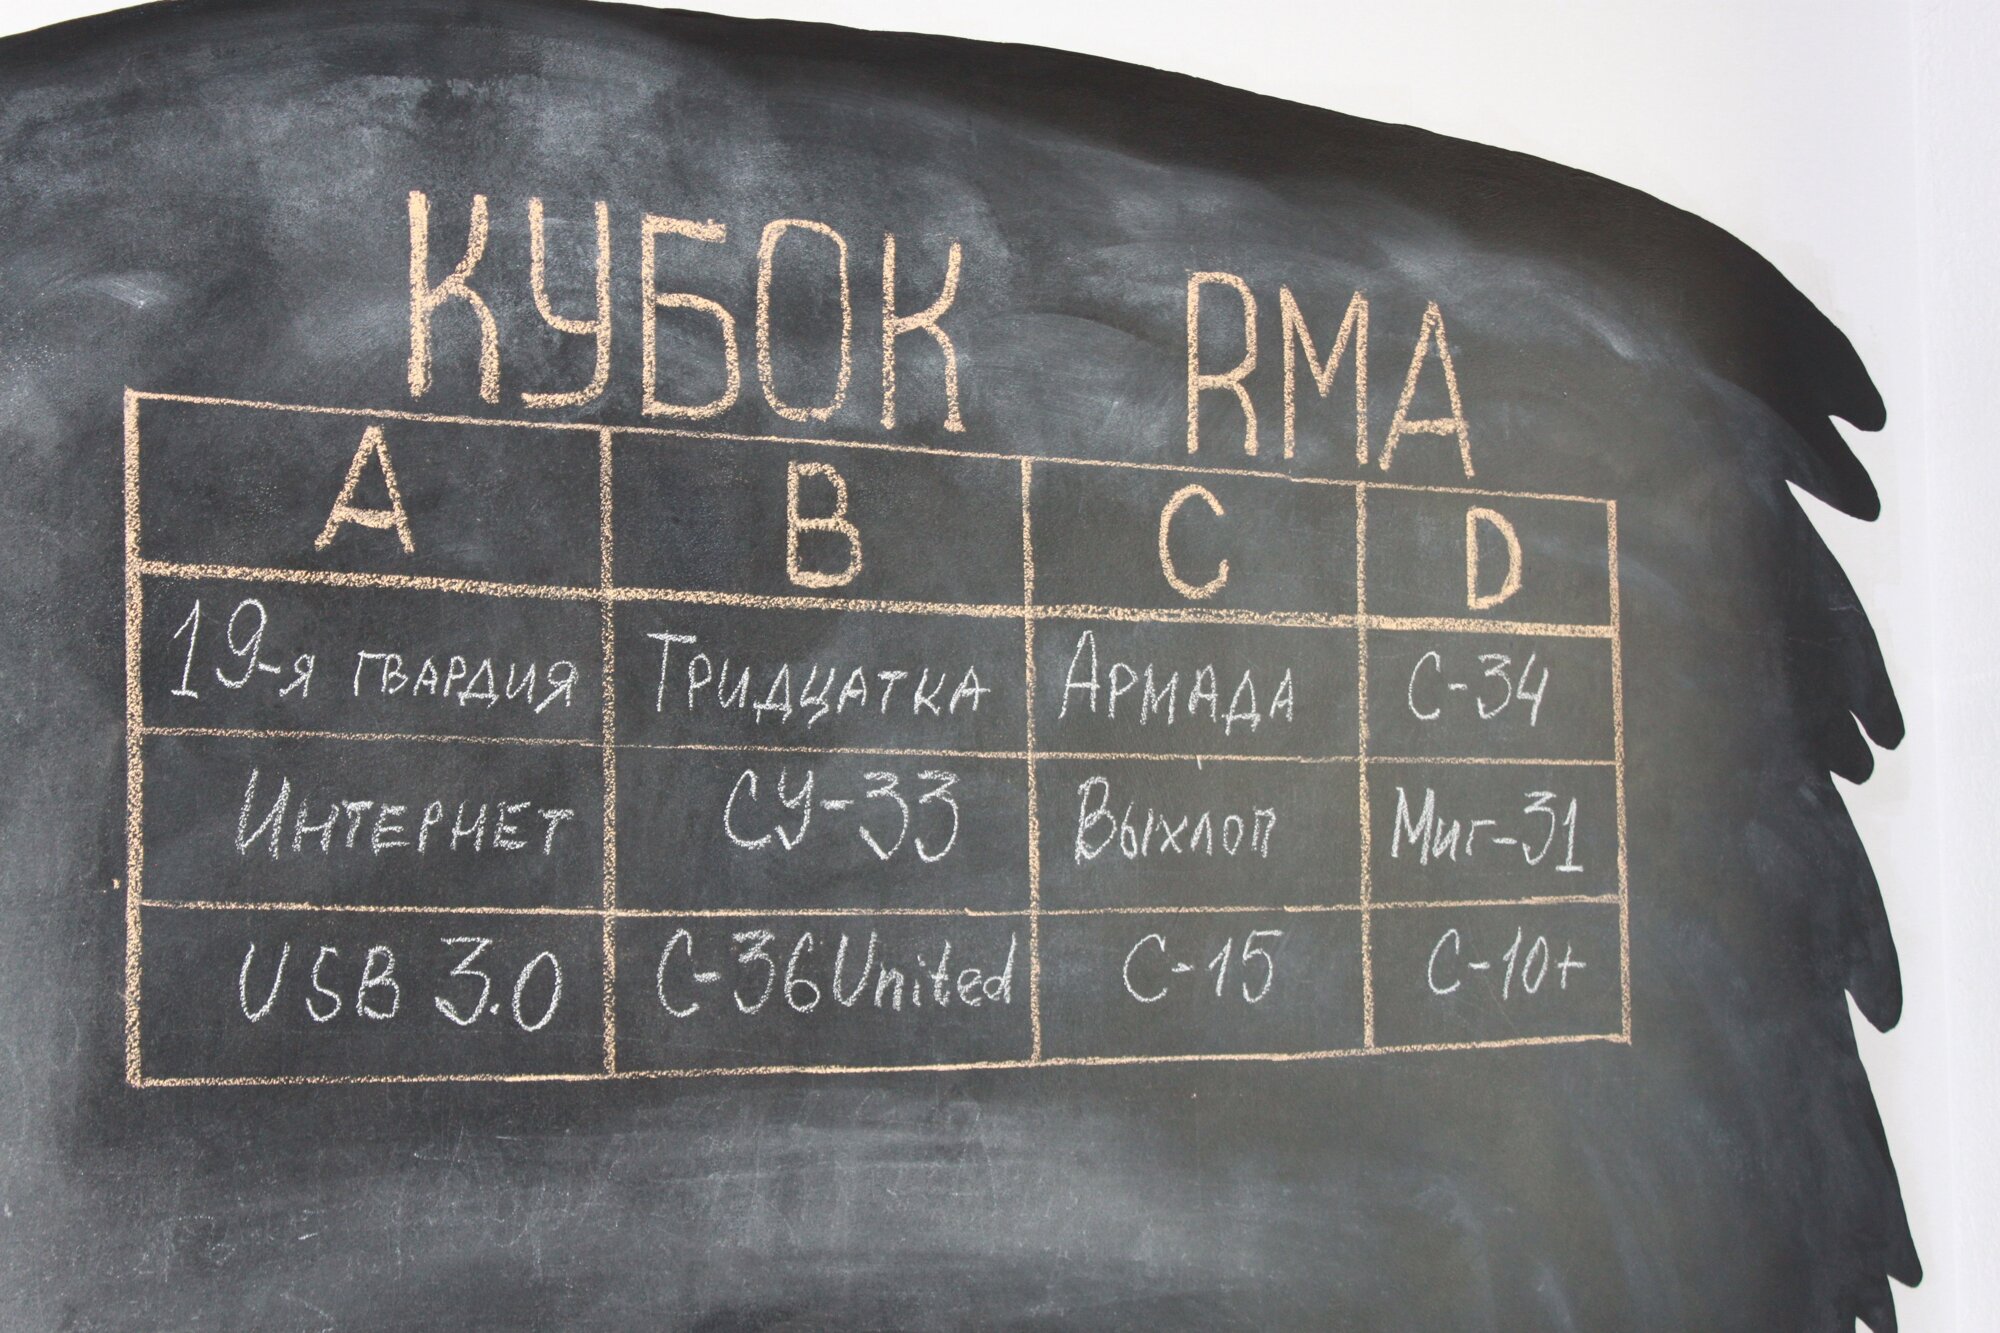 КУБОК RMA
A B C D
19-я гвардия Тридцатка Армада С-34
Интернет СУ-33 Выхлоп Миг-31
USB 3.0 С-36 United С-15 С-10+